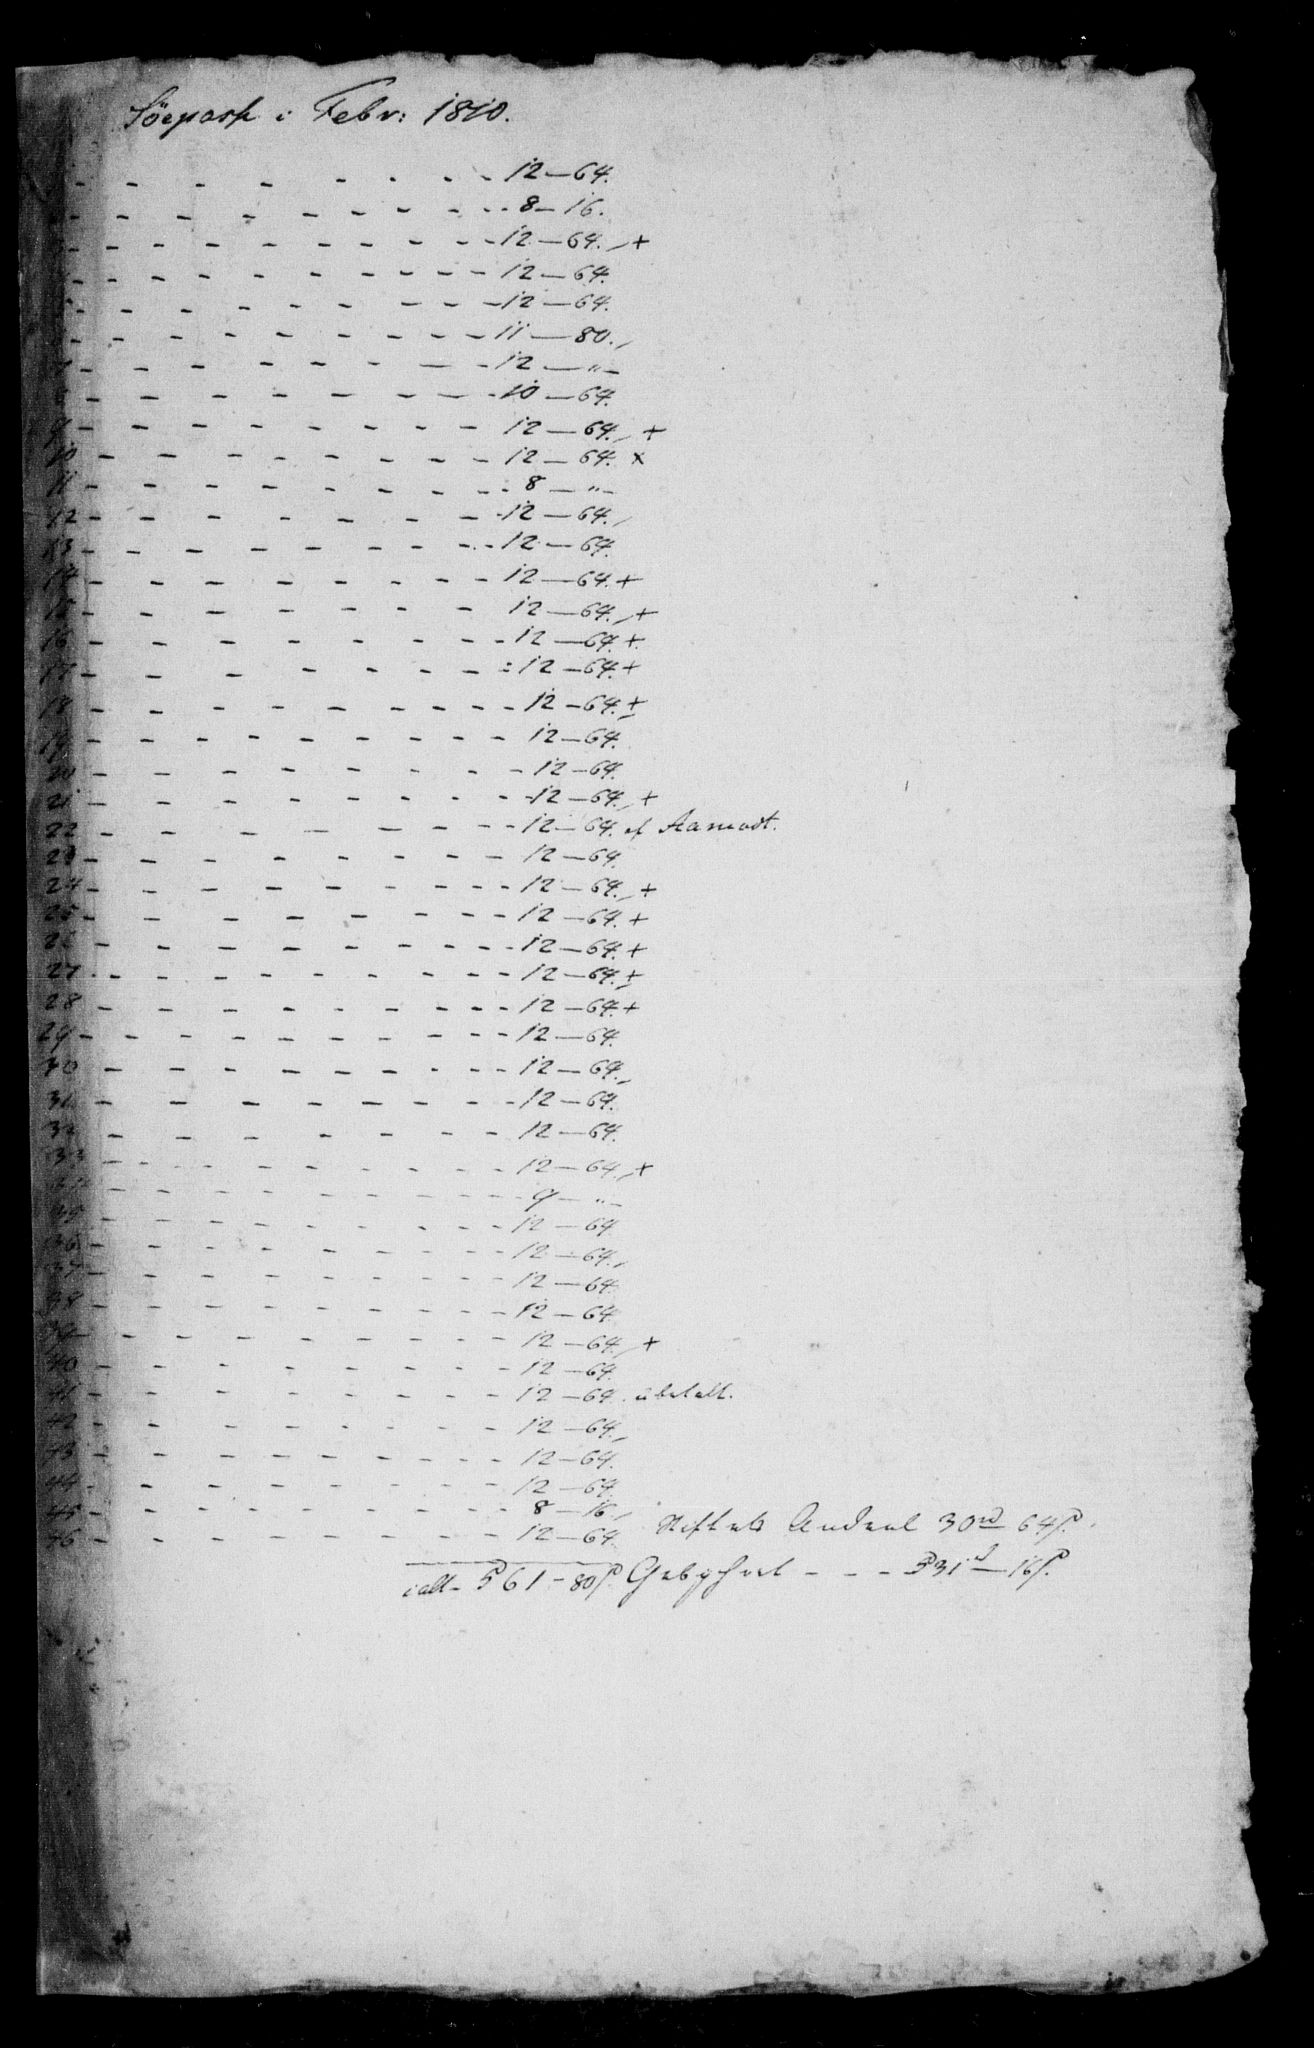 Söepass i Febr: 1810.
- - - - - - - 12 — 64.
- - - - - - - 8 — 16.
- - - - - - - 12 — 64. +
- - - - - - - 12 — 64.
- - - - - - - 12 — 64.
- - - - - - - 11 — 80.
7 - - - - - - - 12 — " —
8 - - - - - - - 10 — 64.
9 - - - - - - - 12 — 64. +
10 - - - - - - - 12 — 64. x
11 - - - - - - - 8 — " —
12 - - - - - - - 12 — 64.
13 - - - - - - - 12 — 64.
14 - - - - - - - 12 — 64. +
15 - - - - - - - 12 — 64. +
16 - - - - - - - 12 — 64. +
17 - - - - - - - 12 — 64. +
18 - - - - - - - 12 — 64. +
19 - - - - - - - 12 — 64.
20 - - - - - - - 12 — 64.
21 - - - - - - - 12 — 64. +
22 - - - - - - - 12 — 64. af Aamodt.
23 - - - - - - - 12 — 64.
24 - - - - - - - 12 — 64. +
25 - - - - - - - 12 — 64. +
26 - - - - - - - 12 — 64. +
27 - - - - - - - 12 — 64. +
28 - - - - - - - 12 — 64. +
29 - - - - - - - 12 — 64.
30 - - - - - - - 12 — 64.
31 - - - - - - - 12 — 64.
32 - - - - - - - 12 — 64.
33 - - - - - - - 12 — 64. +
34 - - - - - - - 9 — " —
35 - - - - - - - 12 — 64
36 - - - - - - - 12 — 64.
37 - - - - - - - 12 — 64
38 - - - - - - - 12 — 64
39 - - - - - - - 12 — 64. +
40 - - - - - - - 12 — 64.
41 - - - - - - - 12 — 64. ubetalt.
42 - - - - - - - 12 — 64.
43 - - - - - - - 12 — 64.
44 - - - - - - - 12 — 64.
45 - - - - - - - 8 — 16.
46 - - - - - - - 12 — 64. Stiftets Andeel 30rd 64s.
ialt - 561 - 80s. Gebyhret - - - 531d — 16s.